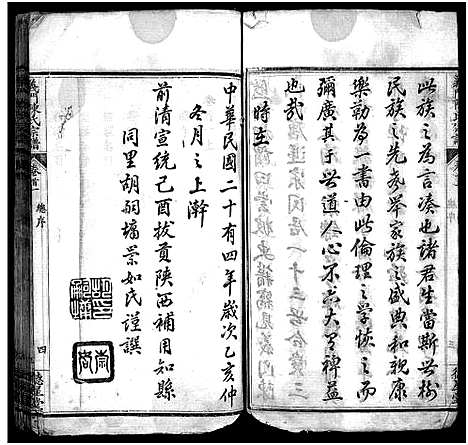 此族之為言湊也諸君生當斯世樹
民族之先務舉家族之盛典和親康
樂勒為一書由此倫理之學恢之而
彌廣其于世道人心不亦大有裨益
也哉
時在
中華民國二十有四年歲次乙亥仲
冬月之上澣
前清宣統己酉拔貢陝西補用知縣
同里胡嗣墉景如氏謹譔
總序
四